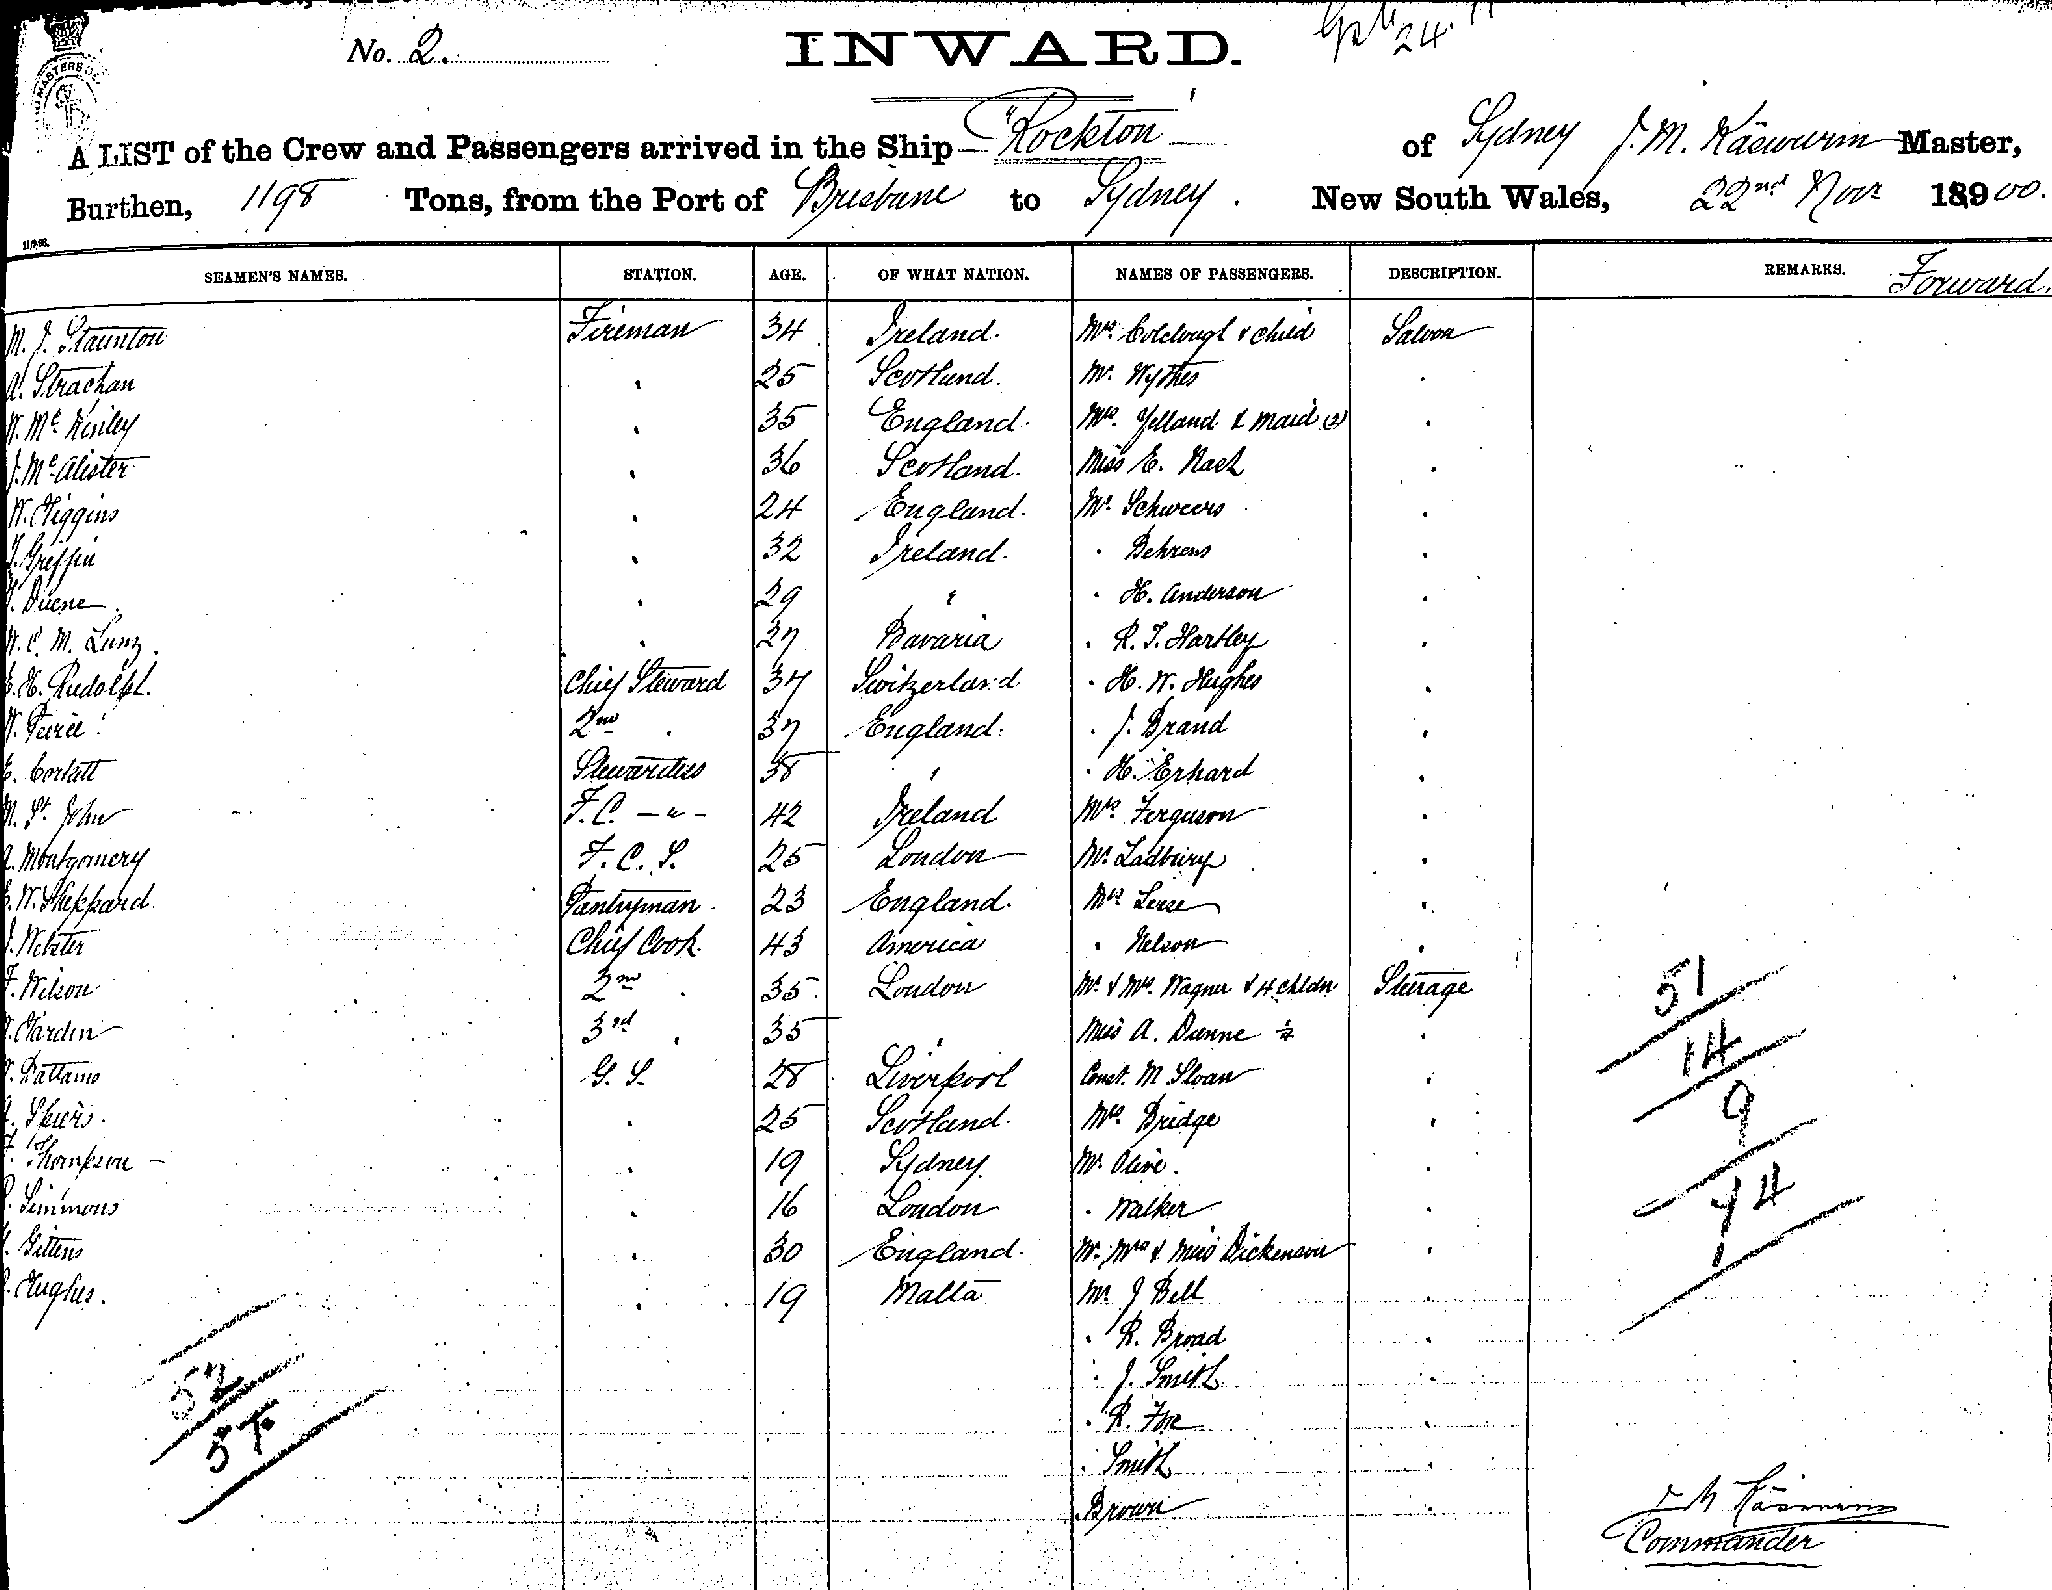 No. 2.
INWARD.
24.11
MASTERS
A LIST of the Crew and Passengers arrived in the Ship "Rockton" of Sydney J. M. Käswurm Master,
Burthen, 1198 Tons, from the Port of Brisbane to Sydney. New South Wales, 22nd Novr 18900.
SEAMEN'S NAMES. STATION. AGE. OF WHAT NATION. NAMES OF PASSENGERS. DESCRIPTION. REMARKS. Forward.
M. J. Staunton Fireman 34 Ireland. Mrs. Colclough & child Saloon
A. Strachan " 25 Scotland. Mr. Wythes "
W. McKinley " 35 England. Mrs. Yelland & maid (2) "
J. McAlister " 36 Scotland. Miss E. Nash "
W. Higgins " 24 England. Mr. Schweers "
J. Griffin " 32 Ireland. " Behrens "
Duene " 29 " " H. Anderson "
W. C. M. Lunz. " 27 Bavaria " R. T. Hartley "
E. H. Rudolph. Chief Steward 37 Switzerland " H. W. Hughes "
W. Peirce 2nd " 37 England. " J. Brand "
E. Corbett Stewardess 38 " " H. Erhard "
M. St. John F.C. - " - 42 Ireland Mrs. Ferguson "
A. Montgomery F. C. S. 25 London Mr. Ladbury "
E. W. Sheppard Pantryman 23 England. Mrs "
J. Webster Chief Cook. 43 America " Nelson "
F. Wilson 2nd " 35 London Mr. & Mrs. Wagner & 4 chldn Steerage
Hardin 3rd " 35 " Miss A. Dunne ½ "
G. S. 28 Liverpool Const. M Sloan "
" 25 Scotland. Mrs. Bridge "
F. Thompson " 19 Sydney. Mr. Olive. "
Simmons " 16 London " Walker "
Gittens " 30 England. Mr. Mrs & Miss Dickenson "
Hughes. " 19 Malta Mr J Bell "
" R. Broad "
" J. Smith "
" R. Fox "
" Smith "
" Brown "
51
14
9
74
52
57
J M Käswurm
Commander